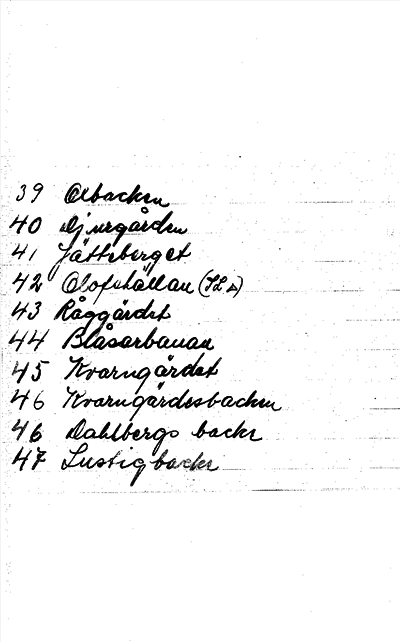 39 Oxbacken
40 Djurgården
41 Jätteberget
42 Olofshällan
43 Råggärdet
44 Blåsarbanan
45 Kvarngärdet
46 Kvarngärdesbacken
46 Dahlbergs backe
47 Lustigbacke